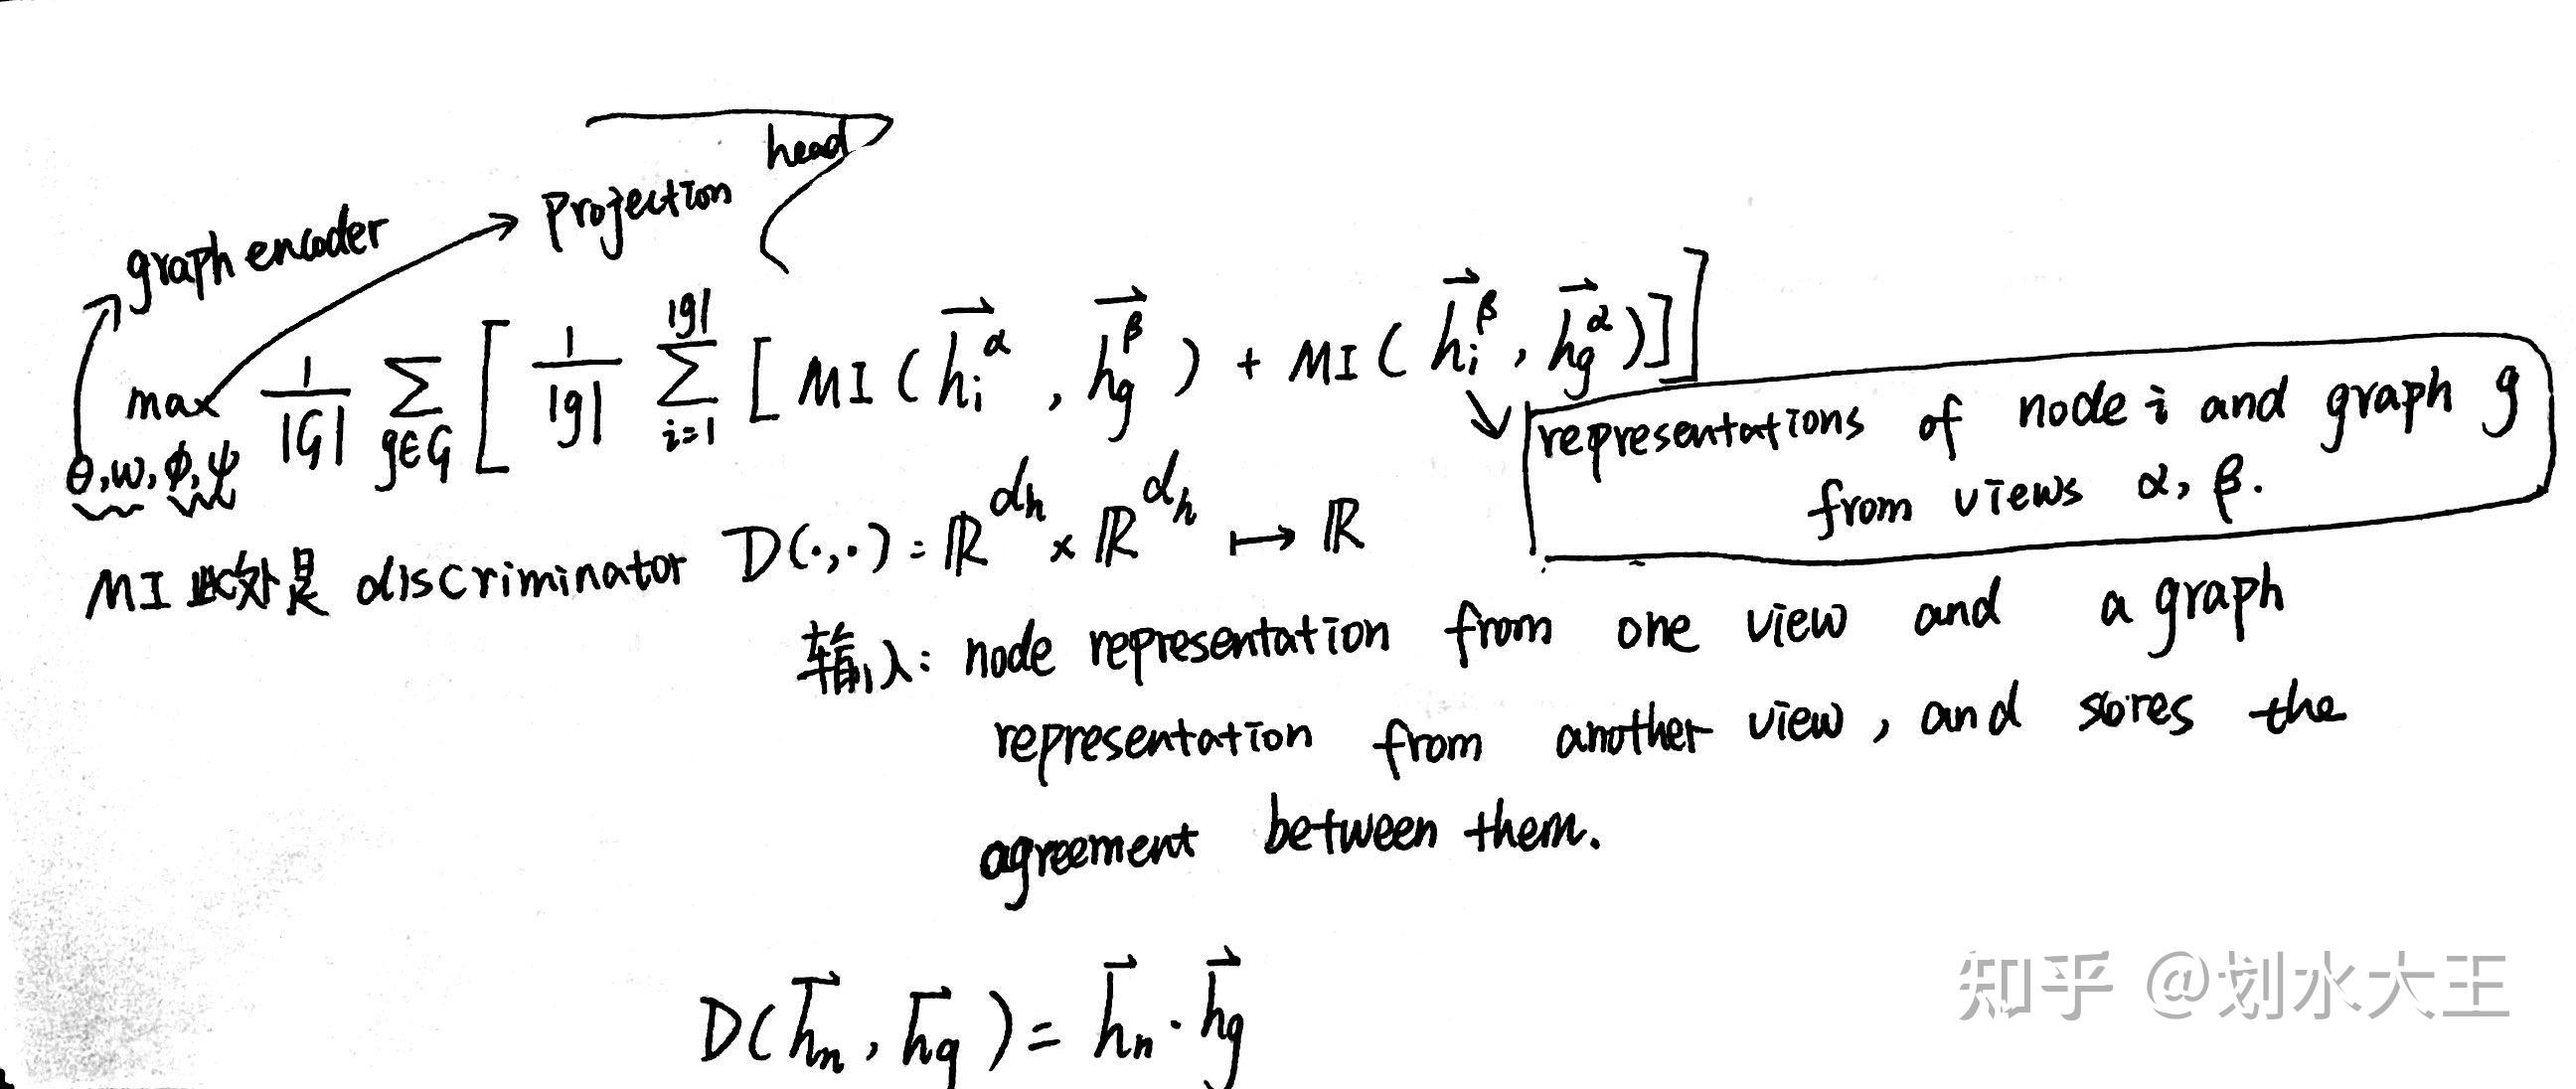 head
projection
graph encoder
max 1/|G| Σ g∈G [ 1/|g| Σ i=1 |g| [ MI( h⃗_i^α , h⃗_g^β ) + MI( h⃗_i^β , h⃗_g^α )]]
θ,ω,ϕ,ψ
representations of node i and graph g
from views α, β.
MI 此处是 discriminator D(·,·) = ℝ^dh × ℝ^dh ↦ ℝ
输入: node representation from one view and a graph
representation from another view, and scores the
agreement between them.
D( h⃗_n , h⃗_g ) = h⃗_n · h⃗_g
知乎 @划水大王